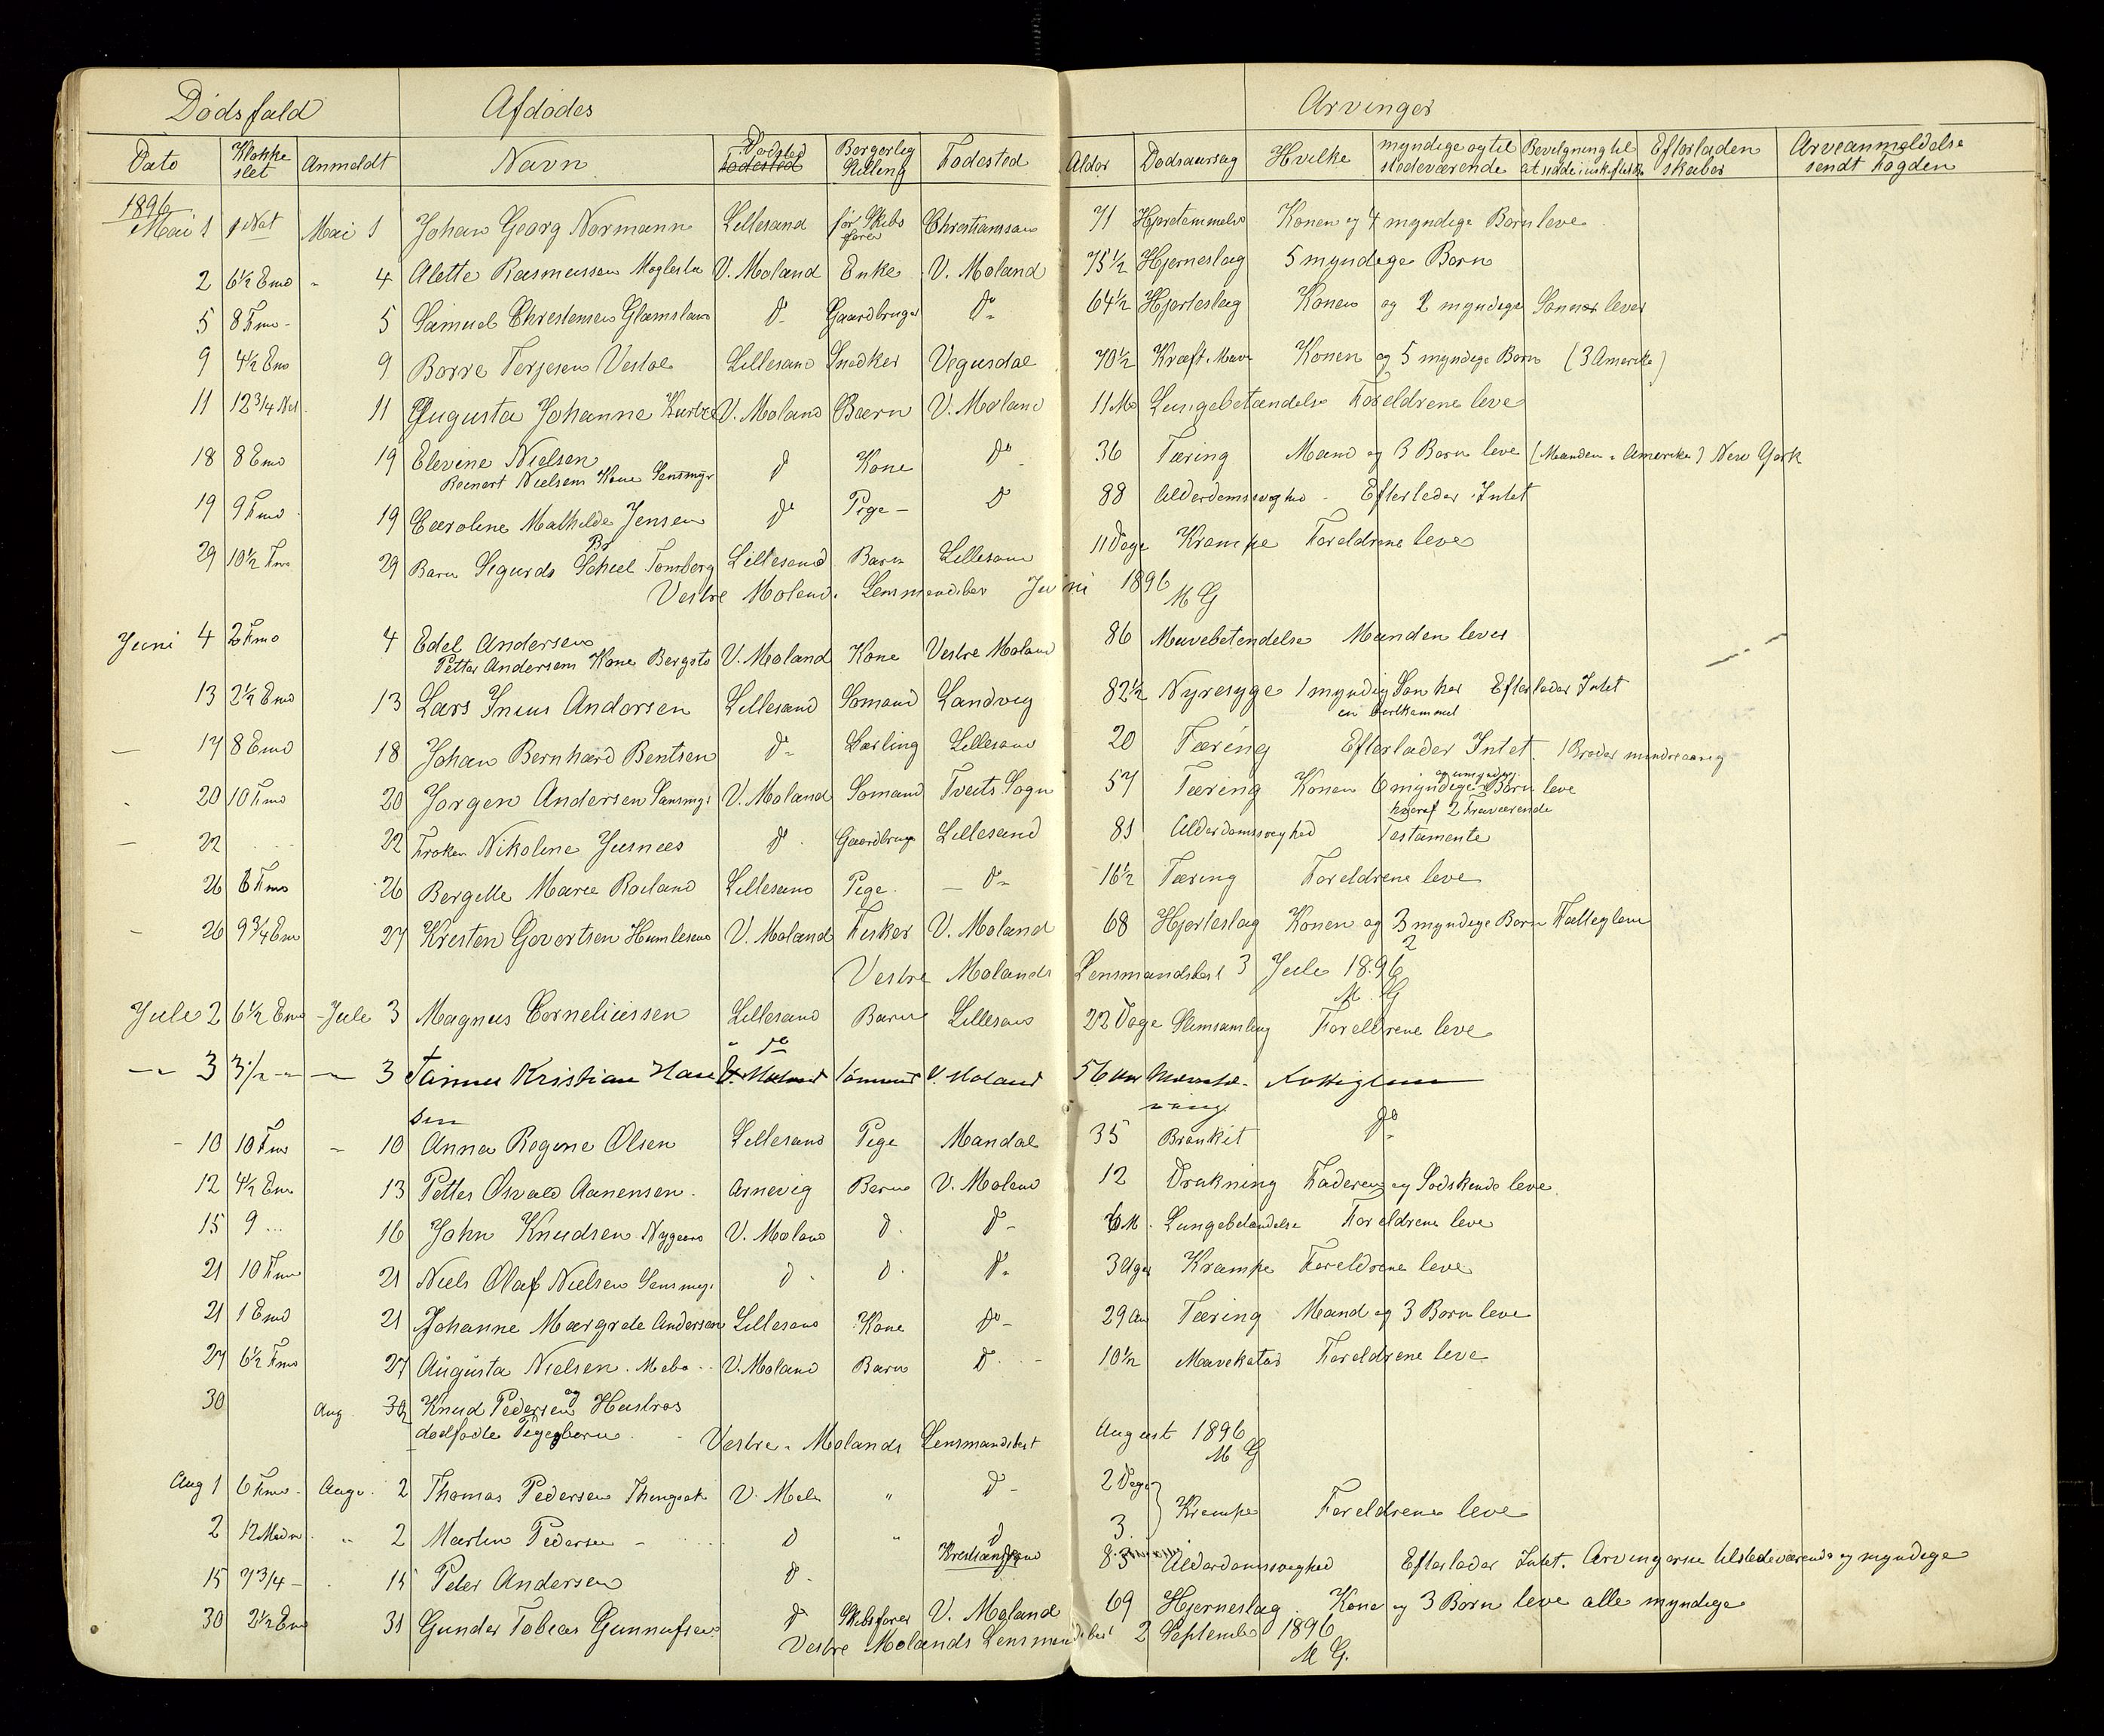 Dødsfald Afdødes Arvinger
Dato Klokke slet Anmeldt Navn Dødsted Fødested Borgerlig Stilling Fødested Alder Dødsaarsag Hvilke myndige og til stedeværende Bevilgning til at sidde i uskiftet Bo Efterladen skaber Arveanmeldelse sendt Fogden
1896
Mai 1 1 Nat Mai 1 Johan Georg Normann Lillesand før Skibs fører Christianssand 71 Konen og 4 myndige Børn leve
2 6½ Emd " 4 Alette Rasmussen Møglestu V. Moland Enke V. Moland 75½ Hjerneslag 5 myndige Børn
5 8 Fmd - 5 Samuel Christensen Glamsland Do Gaardbruger Do 64½ Hjerteslag Konen og 2 myndige Sønner lever
9 4½ Emd 9 Børre Terjesen Vestøl Lillesand Snedker Vegusdal 70½ Kræft. Mave Konen og 5 myndige Børn (3 Amerika)
11 12¾ Nat 11 Augusta Johanne V. Moland Barn V. Moland 11 M Lungebetændelse Foreldrene leve
18 8 Emd 19 Elevine Nielsen Do Kone Do 36 Tæring Mand og 3 Børn leve (Manden i Amerika) New York
Reinert Nielsens Kone Sansmyr
19 9 Fmd 19 Caroline Mathilde Jensen Do Pige - Do 88 Alderdomssvaghed - Efterlader Intet
29 10½ Fmd 29 Barn Sigurds Tønsberg Lillesand Barn Lillesand 11 Dage Krampe Foreldrene leve
Vestre Moland. Lensmandsbest Juni 1896
M G
Juni 4 2 Fmd 4 Edel Andersen V. Moland Kone Vestre Moland 86 Mavebetendelse Manden lever
Petter Andersens Kone Bergstø
13 2½ Emd 13 Lars Inius Andersen Lillesand Sømand Landvig 82½ Nyresyge 1 myndig Søn her Efterlader Intet
en bortkommet
— 17 8 Emd 18 Johan Bernhard Bentsen Do Lærling Lillesand 20 Tæring Efterlader Intet. 1 Broder mindreaarig
20 10 Fmd 20 Jørgen Andersen Sansmyr V. Moland Sømand Tveits Sogn 57 Tæring Konen 6 myndige og umyndige Børn leve
hvoraf 2 Fraværende
— 22 22 Frøken Nikoline Jusnæs Do Gaardbruger Lillesand 81 Alderdomssvaghed Testamente
26 8 Fmd 26 Bergitte Marie Roiland Lillesand Pige — Do 16½ Tæring Foreldrene leve
— 26 9¾ Emd 27 Kristen Govertsen Humlesund V. Moland Fisker V. Moland 68 Hjerteslag Konen og 3 myndige Børn Fattiglem
2
Vestre Molands Lensmandsbest 3 Juli 1896
M. G
Juli 2 6½ Emd - Juli 3 Magnus Corneliussen Lillesand Barn Lillesand 22 Dage Slimsamling Foreldrene leve
—"— 3 3½ —"— 3 Kristian Han V. Moland Sømand V. Moland 56 Aar Fattiglem
sen
- 10 10 Fmd " 10 Anna Regine Olsen Lillesand Pige Mandal 35 Bronkit Do
12 4½ Emd 13 Petter Osvald Aanensen. Arnevig Barn V. Moland 12 Drukning Faderen og Sødskende leve
15 9 ... 16 John Knudsen Nygaard V. Moland Do Do 6 M. Lungebetændelse Foreldrene leve
21 10 Fmd 21 Niels Olaf Nielsen Sansmyr Do Do Do 3 Uger Krampe Foreldrene leve
21 1 Emd 21 Johanne Margrete Andersen Lillesand Kone Do - 29 Aar Tæring Mand og 3 Børn leve
27 6½ Fmd 27 Augusta Nielsen. Mebø V. Moland Barn Do 10½ Mavekatar Foreldrene leve
30 Aug. 30 Knud Pedersen og Hustros
dødfødte Pigebørn
Vestre - Molands Lensmandsbest August 1896
M G
Aug 1 6 Fmd - Augu. 2 Thomas Pedersen V. Mol " Do 2 Dage Krampe Foreldrene leve
2 12 " 2 Martin Pedersen Do " Do 3
15 7¾ - 15 Peter Andersen Do Kristiansand 83 Alderdomssvaghed Efterlader Intet. Arvingerne tilstedeværende og myndige
30 2½ Emd 31 Gunder Tobias Gunnufsen Do Skibsfører V. Moland 69 Hjerneslag Kone og 3 Børn leve alle myndige
Vestre Molands Lensmandsbest 2 September 1896
M G.